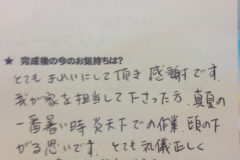 ★ 完成後の今のお気持ちは?
とてもきれいにして頂き感謝です。
我が家を担当して下さった方、真夏の
一番暑い時炎天下での作業、頭の下
がる思いです。とても礼儀正しく